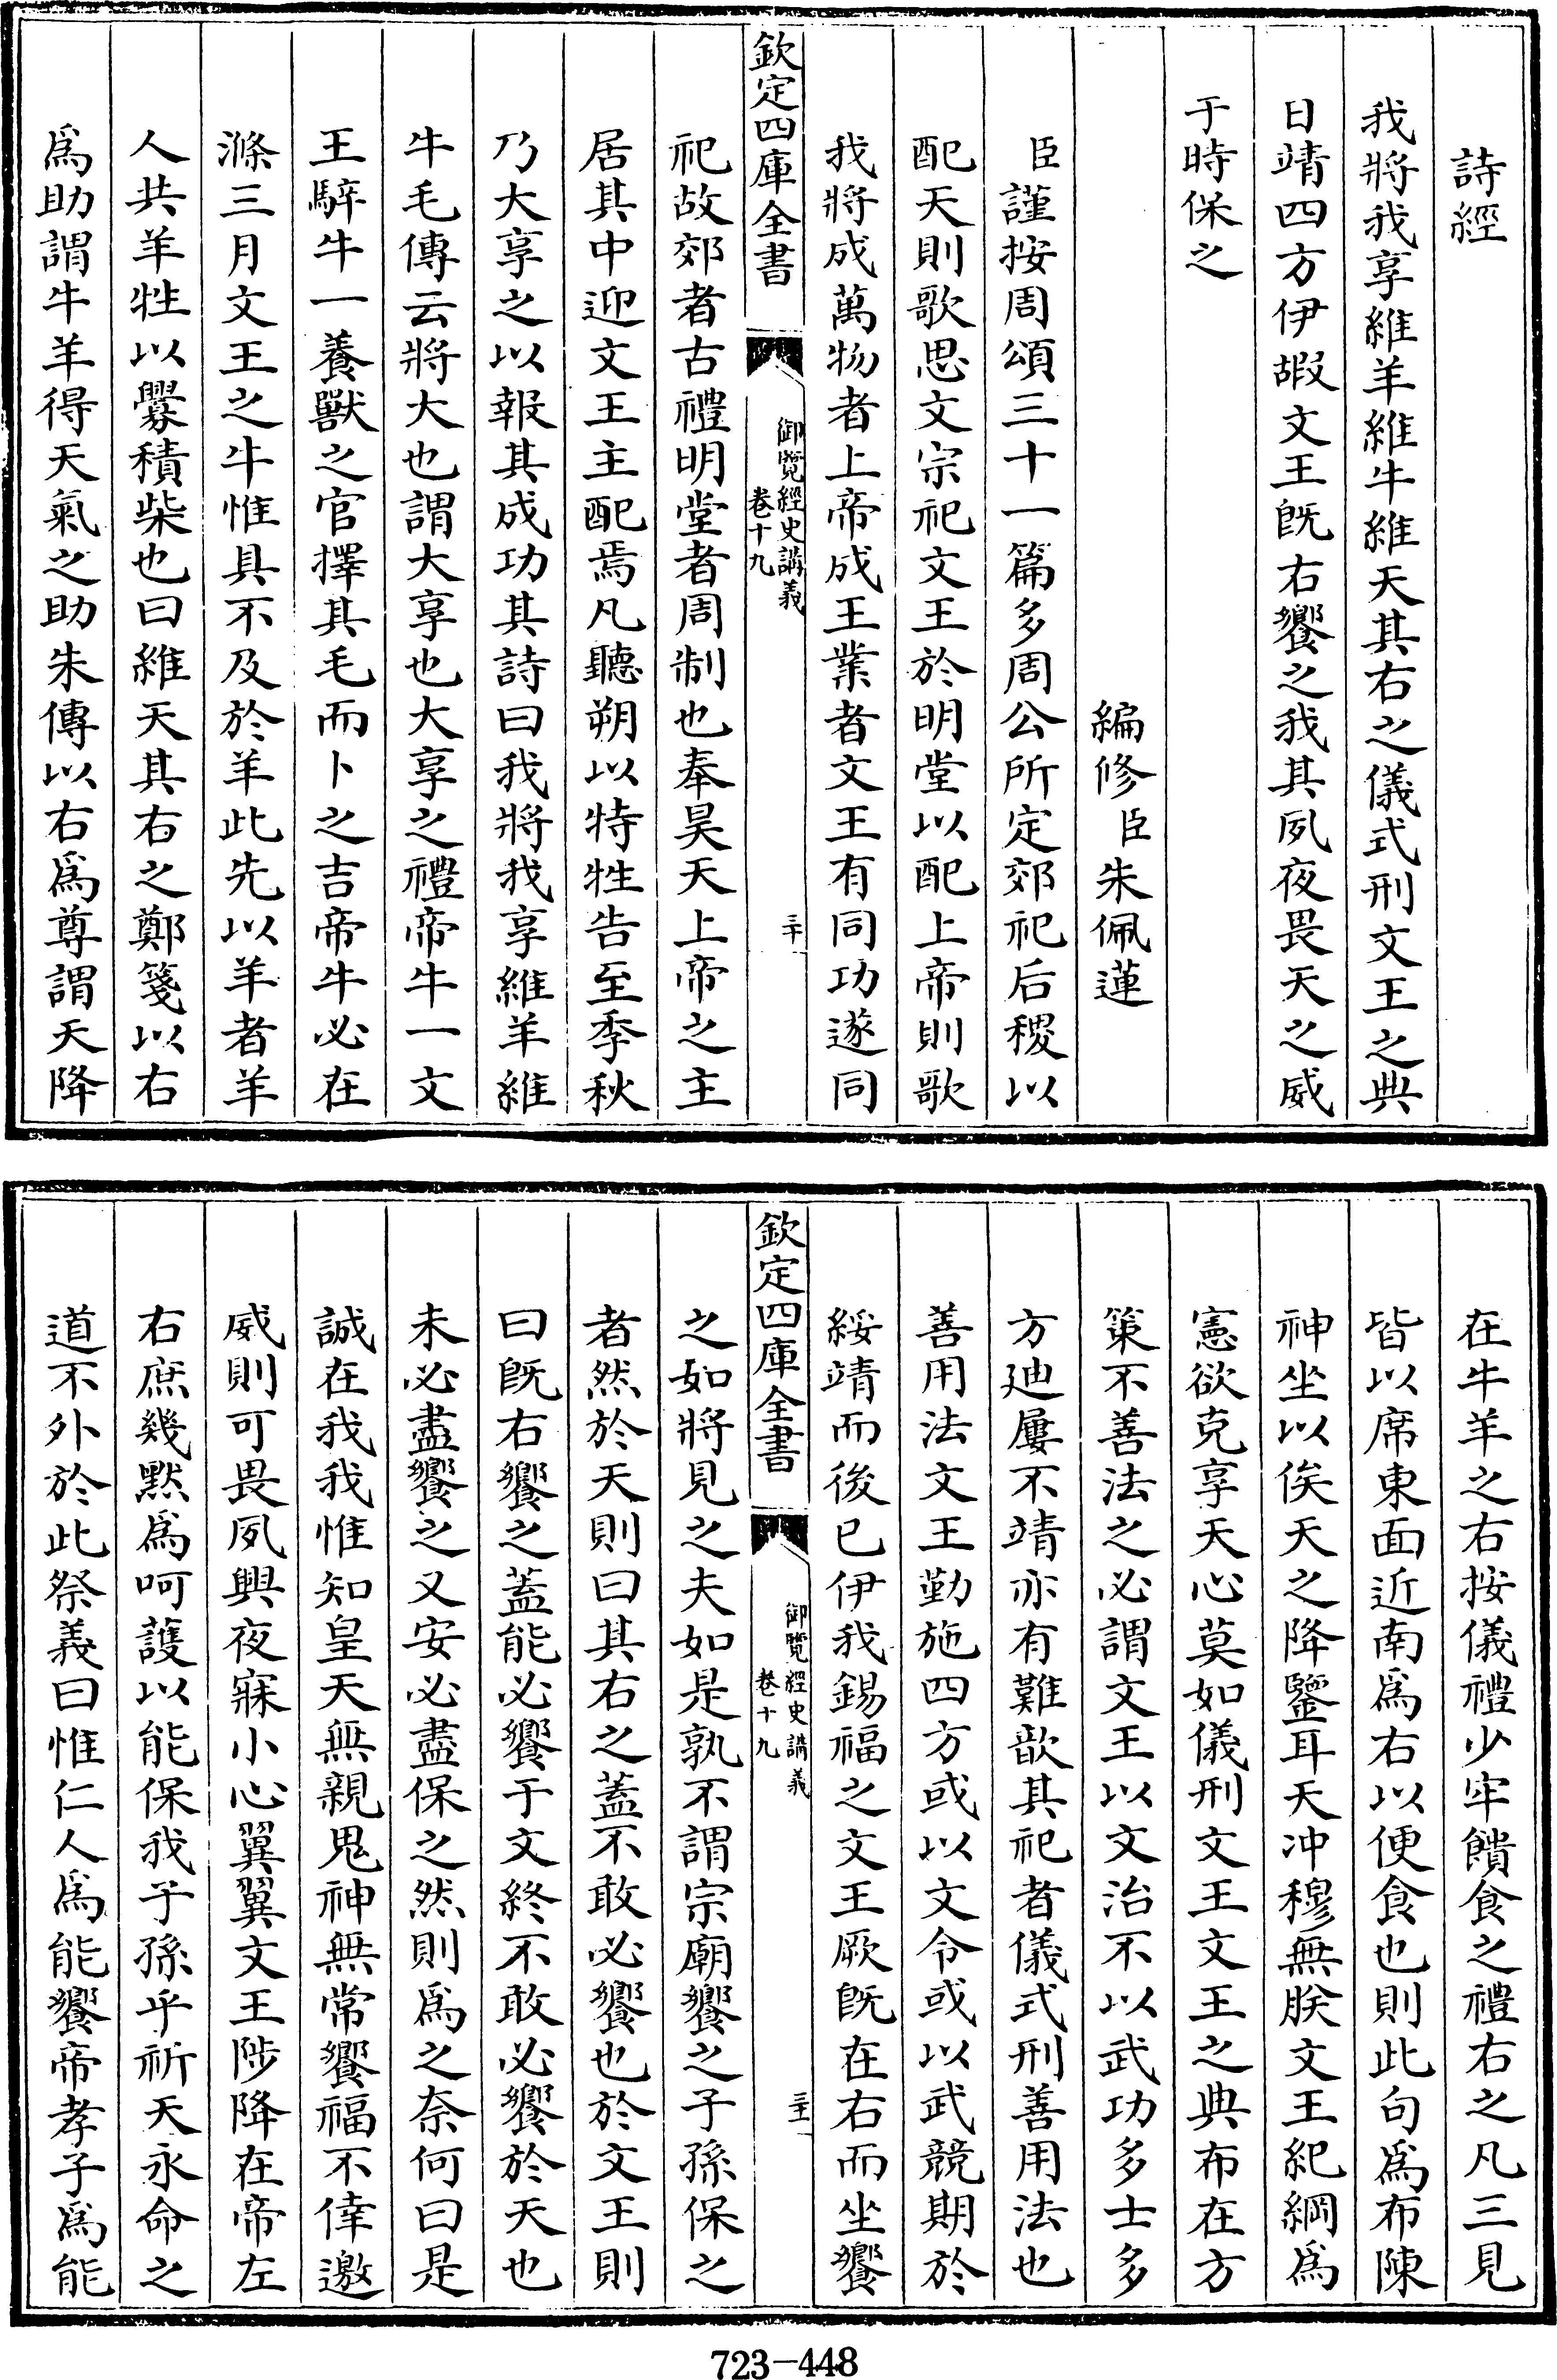 詩經
我將我享維羊維牛維天其右之儀式刑文王之典
日靖四方伊嘏文王既右饗之我其夙夜畏天之威
于時保之
編修臣朱佩蓮
臣謹按周頌三十一篇多周公所定郊祀后稷以
配天則歌思文宗祀文王於明堂以配上帝則歌
我將成萬物者上帝成王業者文王有同功遂同
欽定四庫全書
御覽經史講義
卷十九
三十
祀故郊者古禮明堂者周制也奉昊天上帝之主
居其中迎文王主配焉凡聽朔以特牲告至季秋
乃大享之以報其成功其詩曰我將我享維羊維
牛毛傳云將大也謂大享也大享之禮帝牛一文
王騂牛一養獸之官擇其毛而卜之吉帝牛必在
滌三月文王之牛惟具不及於羊此先以羊者羊
人共羊牲以爨積柴也曰維天其右之鄭箋以右
爲助謂牛羊得天氣之助朱傳以右爲尊謂天降
在牛羊之右按儀禮少牢饋食之禮右之凡三見
皆以席東面近南爲右以便食也則此句爲布陳
神坐以俟天之降鑒耳天冲穆無朕文王紀綱爲
憲欲克享天心莫如儀刑文王文王之典布在方
策不善法之必謂文王以文治不以武功多士多
方廸屢不靖亦有難歆其祀者儀式刑善用法也
善用法文王勤施四方或以文令或以武競期於
綏靖而後已伊我錫福之文王厥既在右而坐饗
欽定四庫全書
御覽經史講義
卷十九
三十一
之如將見之夫如是孰不謂宗廟饗之子孫保之
者然於天則曰其右之蓋不敢必饗也於文王則
曰既右饗之蓋能必饗于文終不敢必饗於天也
未必盡饗之又安必盡保之然則爲之奈何曰是
誠在我我惟知皇天無親鬼神無常饗福不倖邀
威則可畏夙興夜寐小心翼翼文王陟降在帝左
右庶幾默爲呵護以能保我子孫乎祈天永命之
道不外於此祭義曰惟仁人爲能饗帝孝子爲能
723-448